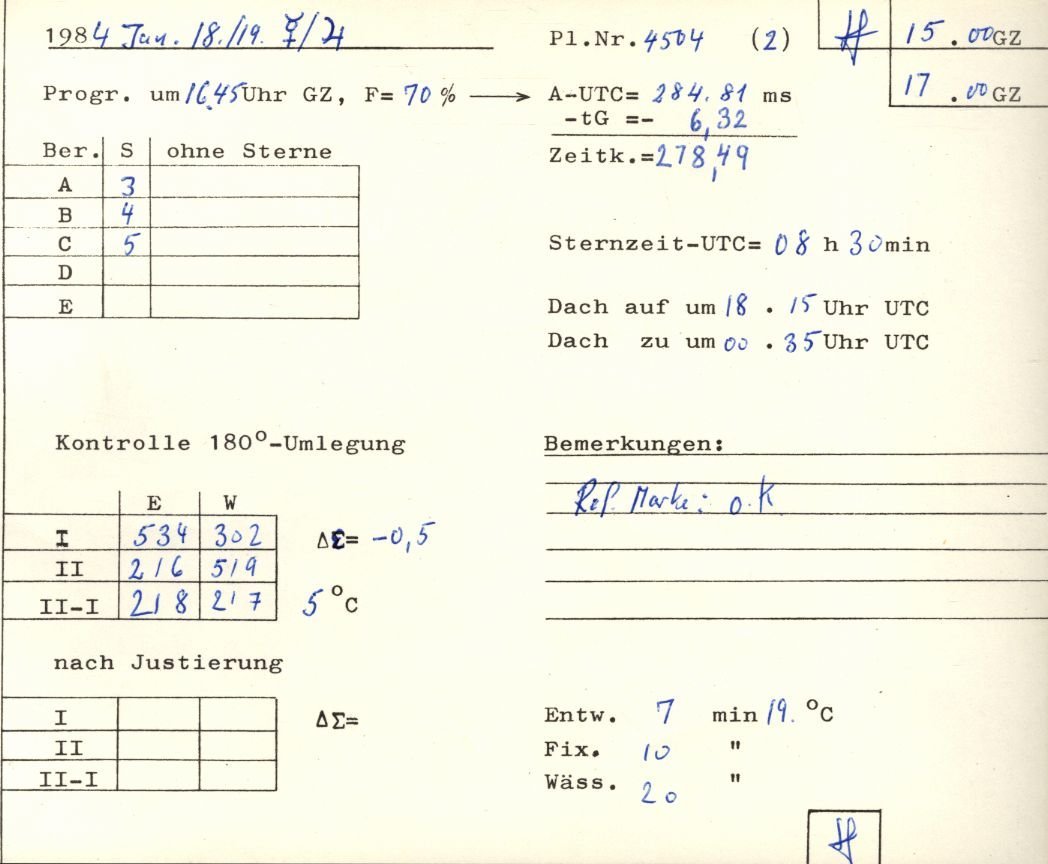 1984 Jan. 18./19. ☿/♃
Pl.Nr. 4504 (2)
15.00 GZ
17.00 GZ
Progr. um 16.45 Uhr GZ, F= 70 % → A-UTC= 284.81 ms
-tG =- 6,32
Zeitk.=278,49
Ber. S ohne Sterne
A 3
B 4
C 5
D
E
Sternzeit-UTC= 08 h 30 min
Dach auf um 18 . 15 Uhr UTC
Dach zu um 00 . 35 Uhr UTC
Kontrolle 180°-Umlegung
E W
I 534 302
II 216 519
II-I 218 217
ΔΣ= -0,5
5 °C
Bemerkungen:
Ref. Marke: o.K
nach Justierung
I
II
II-I
ΔΣ=
Entw. 7 min 19. °C
Fix. 10 "
Wäss. 20 "